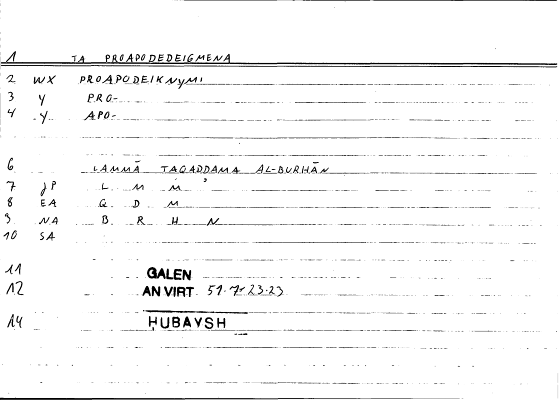 1 TA PROAPODEDEIGMENA
2 WX PROAPODEIKNYMI
3 Y PRO-
4 Y APO-
6 LAMMĀ TAQADDAMA AL-BURHĀN
7 JP L M M ʾ
8 EA Q D M
9 NA B R H N
10 SA
11 GALEN
12 AN VIRT 51.7-23.23
14 ḤUBAYSH